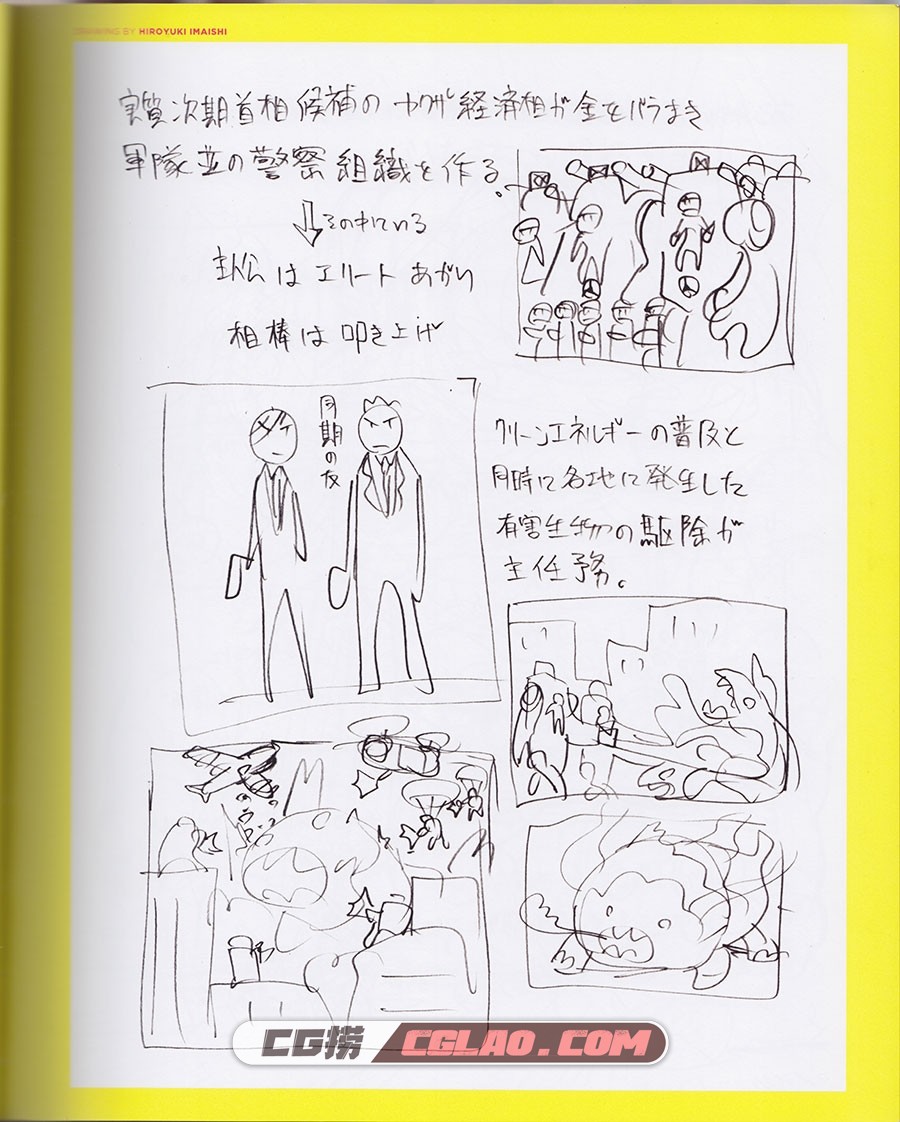 DRAWING BY HIROYUKI IMAISHI
実質次期首相候補のヤクザ経済相が金をバラまき
軍隊並の警察組織を作る。
その中にいる
主人公はエリートあがり
相棒は叩き上げ
同期の友
クリーンエネルギーの普及と
同時に各地に発生した
有害生物の駆除が
主任務。
CG捞 CGLAO.COM